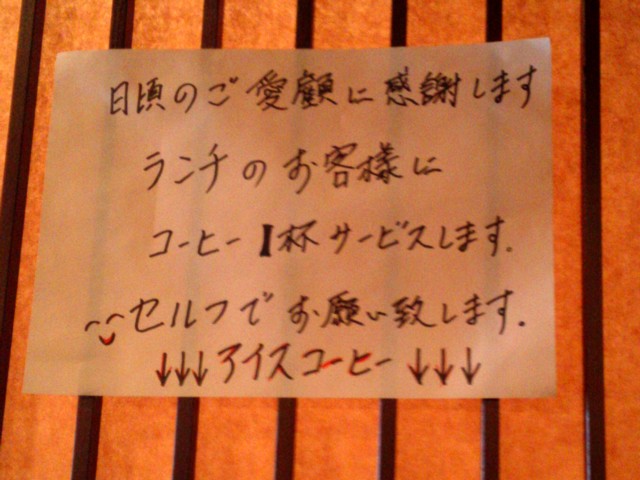 日頃のご愛顧に感謝します
ランチのお客様に
コーヒー1杯サービスします.
セルフでお願い致します.
↓↓↓アイスコーヒー↓↓↓